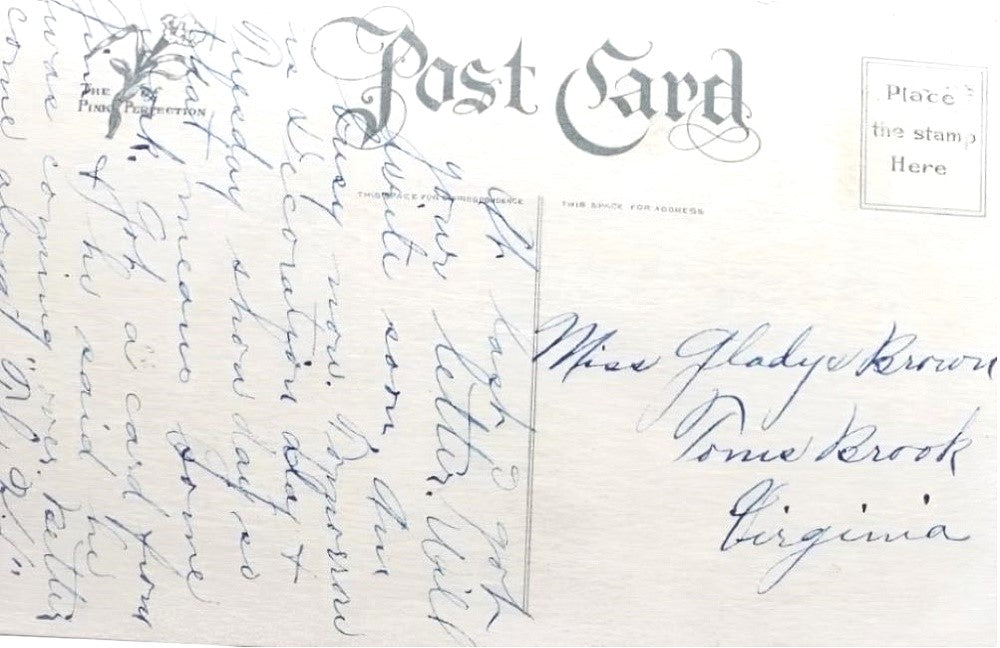 Post Card
Place
the stamp
Here
THE OF
PINK PERFECTION
THIS SPACE FOR CORRESPONDENCE
THIS SPACE FOR ADDRESS
At last I got
your letter. Will
write soon. Am
busy now. Tomorrow
is Decoration day +
Tuesday show day so
that means some
work. Got a card from
& he said he
was coming over. Better
come along.
Miss Gladys Brown
Toms Brook
Virginia